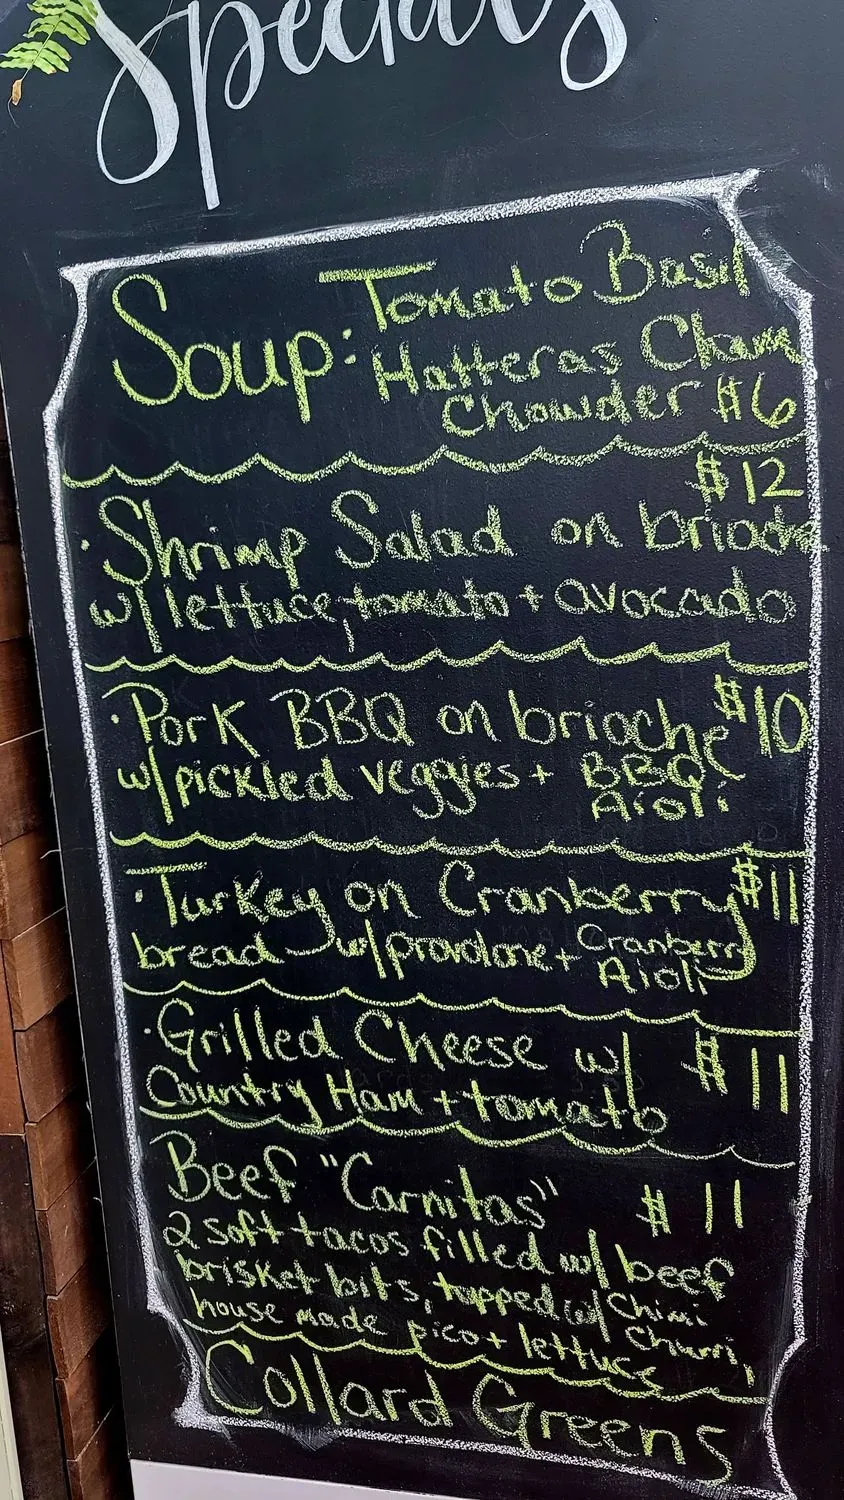 Specials
Soup: Tomato Basil
Hatteras Clam
Chowder $6
$12
·Shrimp Salad on brioche
w/ lettuce, tomato + avocado
·Pork BBQ on brioche $10
w/ pickled veggies + BBQ
Aioli
·Turkey on Cranberry $11
bread w/ provolone + Cranberry
Aioli
·Grilled Cheese w/ $11
Country Ham + tomato
Beef "Carnitas" $11
2 soft tacos filled w/ beef
brisket bits, topped w/ Chimi
Churri,
house made pico + lettuce
Collard Greens